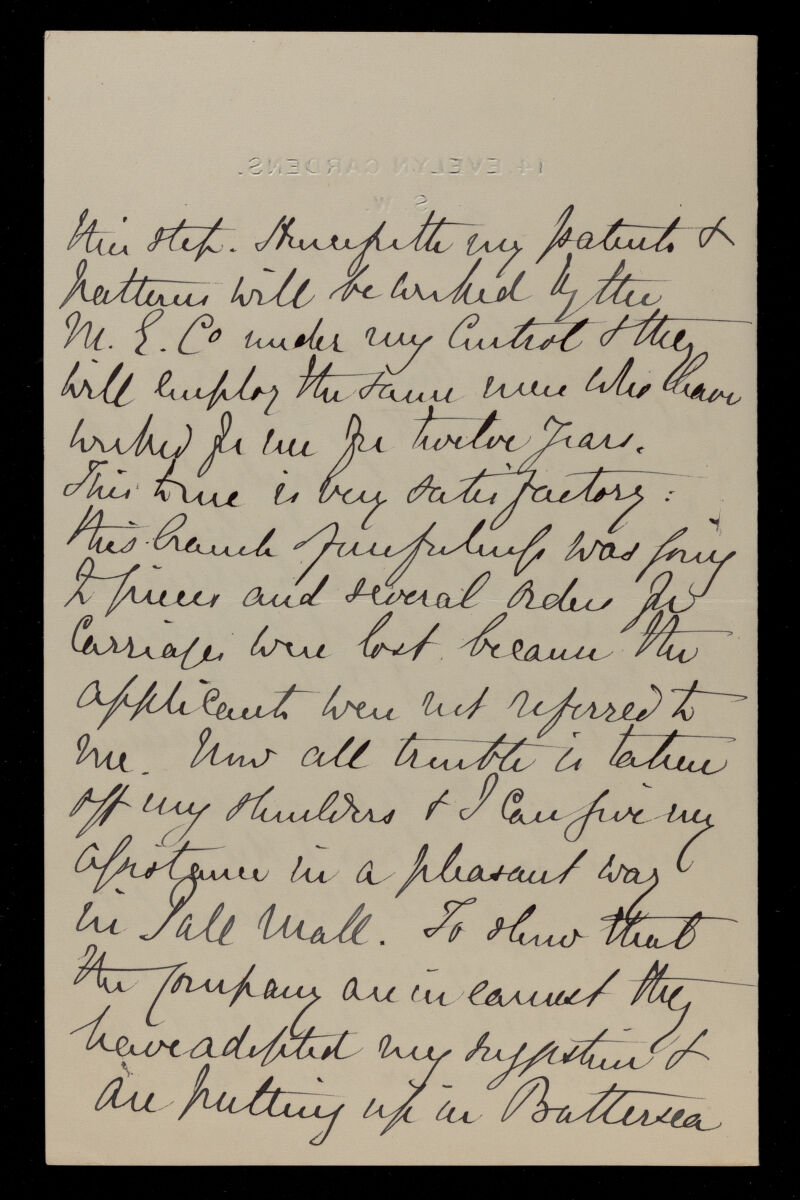 14, EVELYN GARDENS.
S. W.
this step. Henceforth my patents &
patterns will be worked by the
M. E. Co under my Control & they
will employ the same men who have
worked for me for twelve years.
This to me is very satisfactory:
this branch of usefulness was going
to pieces and several orders for
Carriages were lost because the
applicants were not referred to
me. Now all trouble is taken
off my shoulders & I can give my
assistance in a pleasant way
in Pall Mall. To show that
the Company are in earnest they
have adopted my suggestion &
are putting up in Battersea